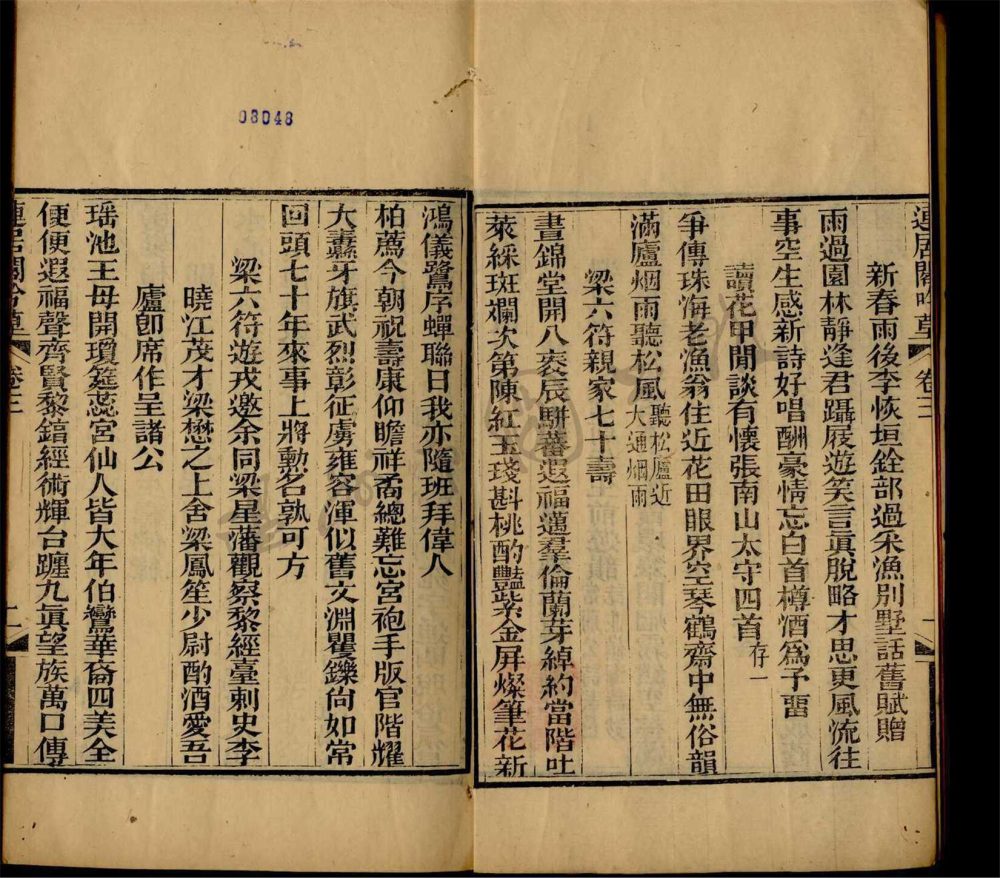 08048
新春雨後李恢垣銓部過釆漁別墅話舊賦贈
雨過園林靜逢君躡屐遊笑言眞脫略才思更風流往
事空生感新詩好唱酬豪情忘白首樽酒爲予畱
讀花甲閒談有懷張南山太守四首存一
爭傳珠海老漁翁住近花田眼界空琴鶴齋中無俗韻
滿廬烟雨聽松風聽松廬近大通烟雨
梁六符親家七十壽
晝錦堂開八袠辰駢蕃遐福邁羣倫蘭芽綽約當階吐
萊綵斑斕次第陳紅玉琖斟桃酌豔紫金屏燦筆花新
鴻儀鷺序蟬聯日我亦隨班拜偉人
柏薦今朝祝壽康仰瞻祥矞總難忘宮袍手版官階耀
大纛牙旗武烈彰征虜雍容渾似舊文淵矍鑠尙如常
回頭七十年來事上將勳名孰可方
梁六符遊戎邀余同梁星藩觀察黎經臺刺史李
曉江茂才梁懋之上舍梁鳳笙少尉酌酒愛吾
廬卽席作呈諸公
瑶池王母開瓊筵蕊宮仙人皆大年伯鸞華裔四美全
便便遐福聲齊賢黎錇經術輝台躔九眞望族萬口傳